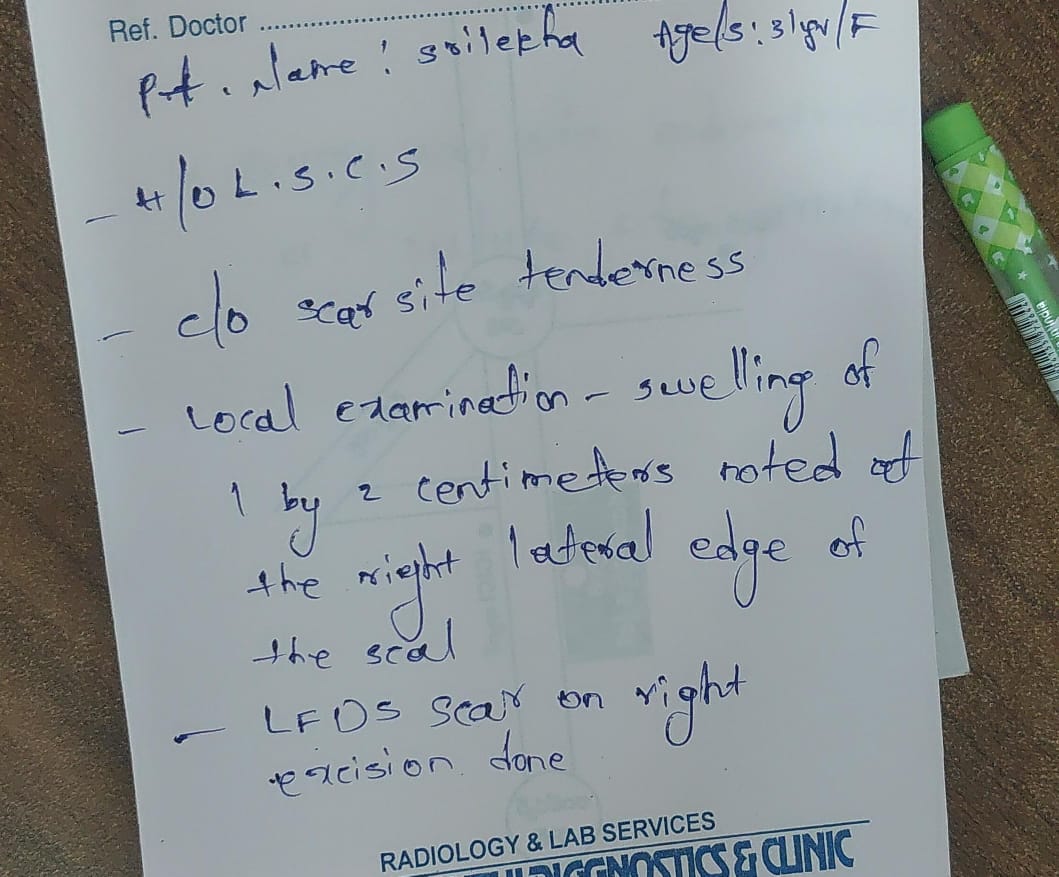 Ref. Doctor ..........
Pt. Name : srilekha Age/s : 31yr/F
- H/O L.S.C.S
- c/o scar site tenderness
- Local examination - swelling of
1 by 2 centimeters noted at
the right lateral edge of
the scal
- LFDS Scar on right
excision done
RADIOLOGY & LAB SERVICES
DIGGNOSTICS & CLINIC